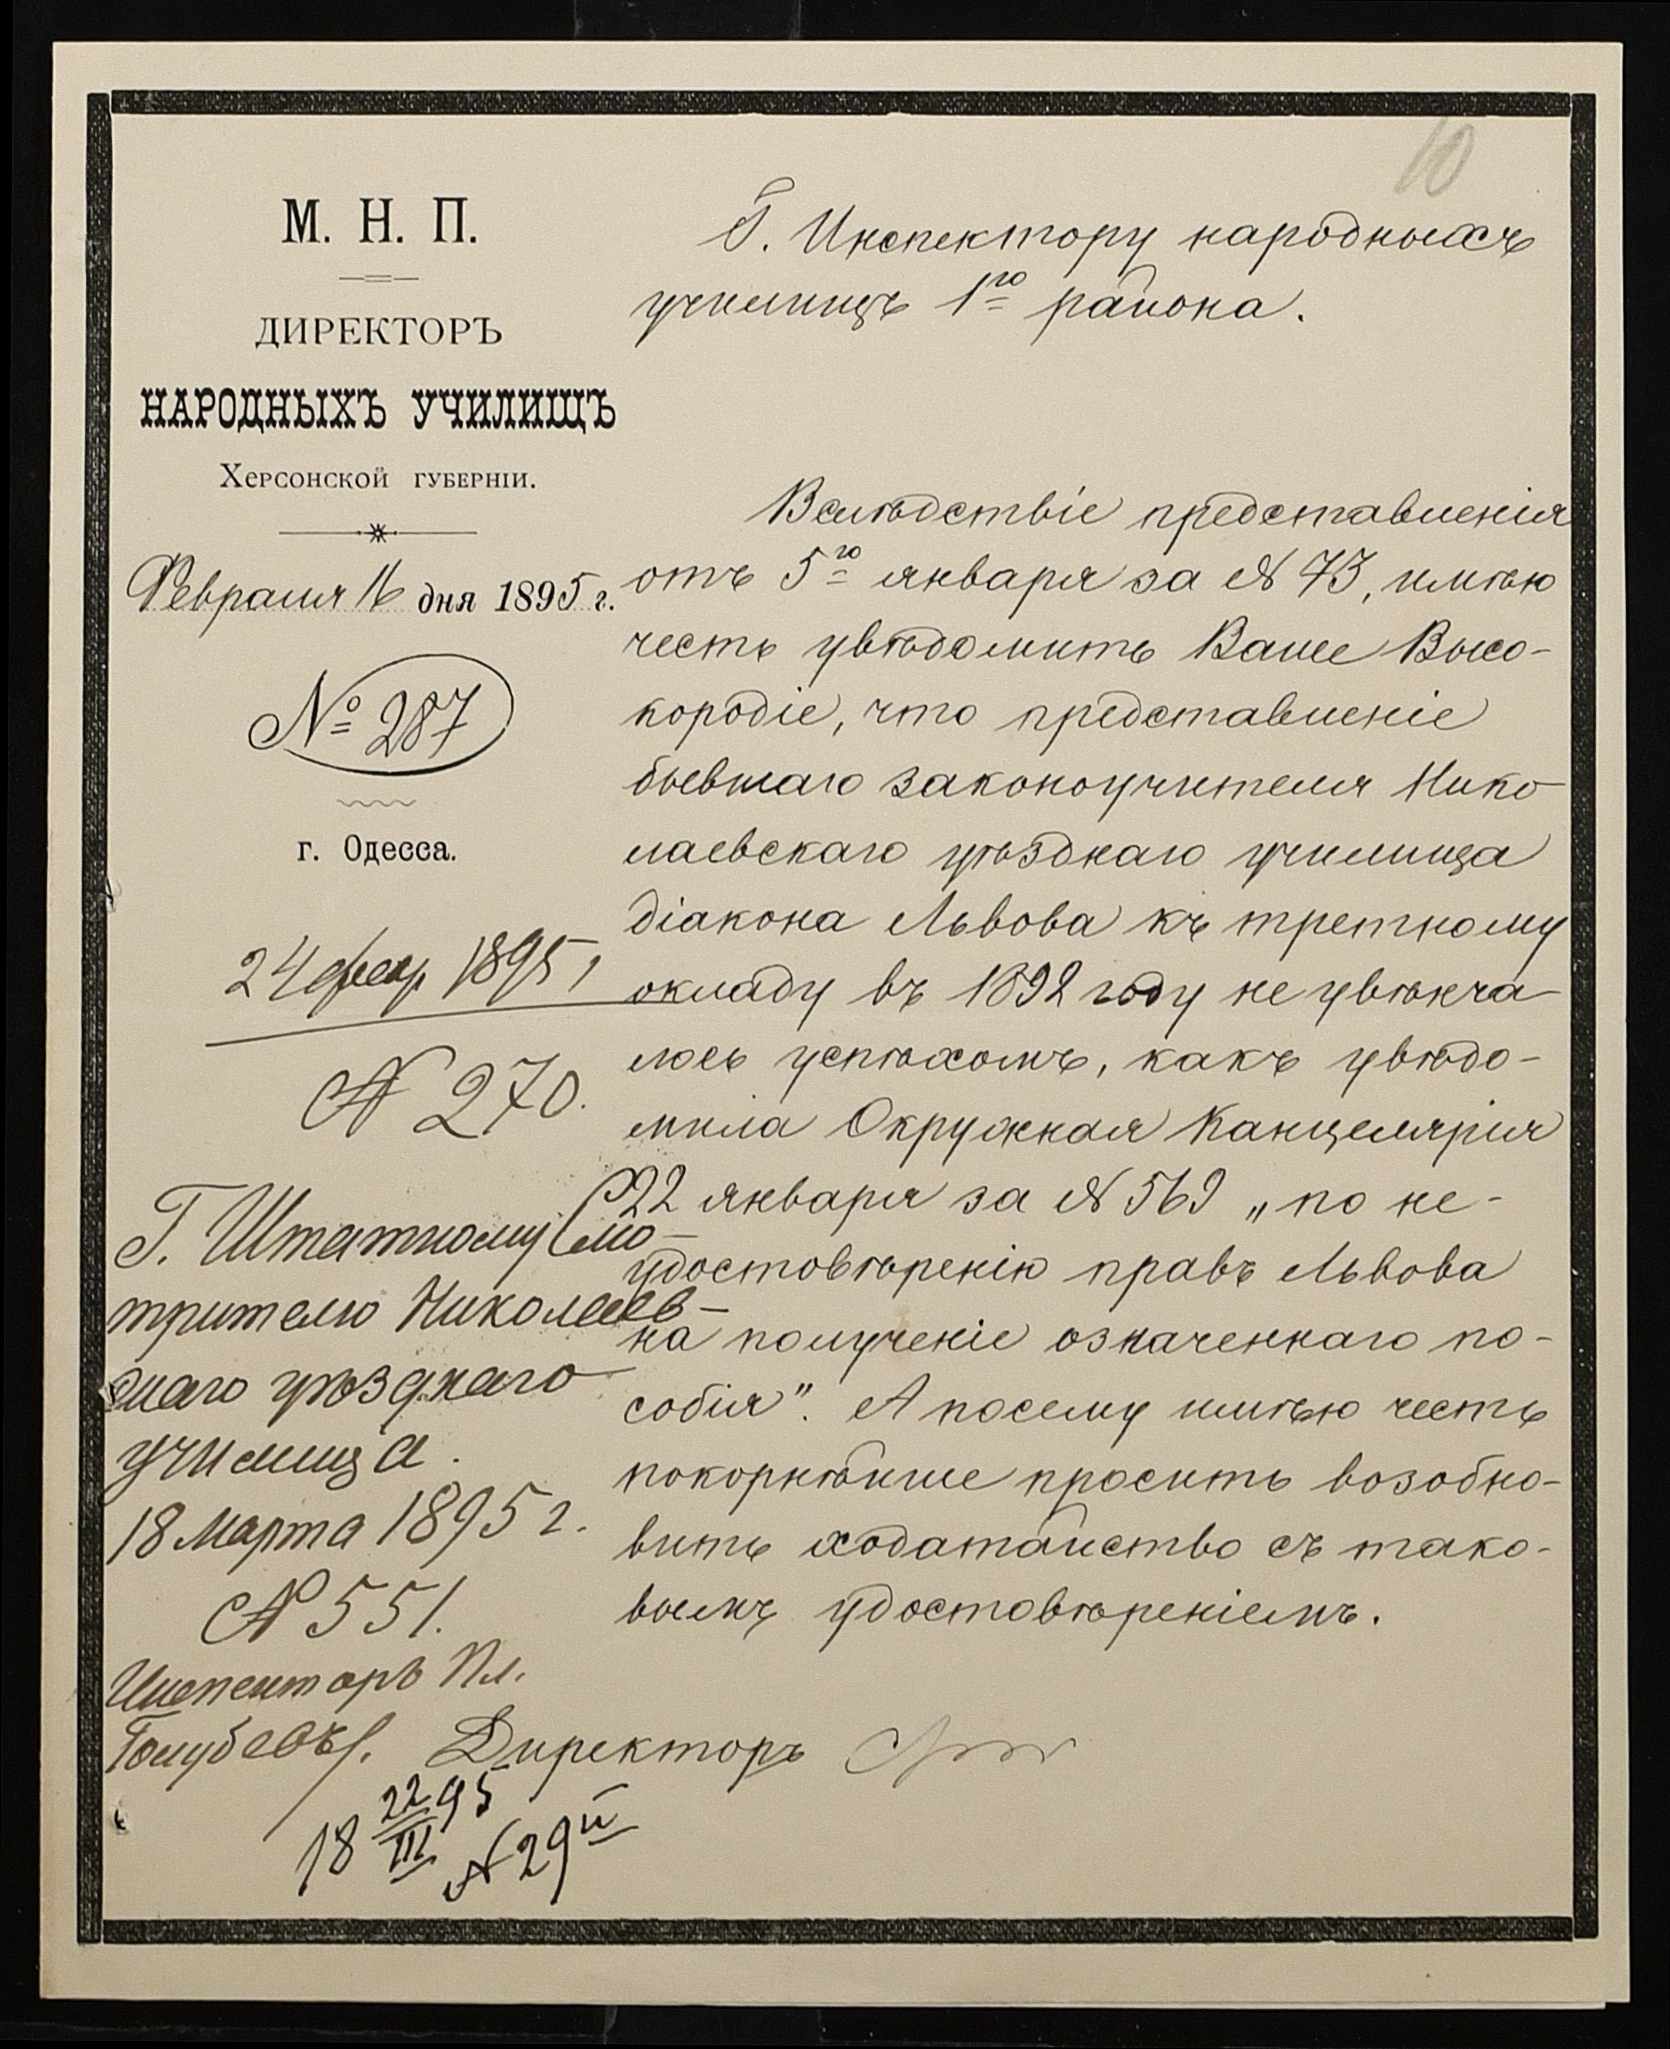 10
М. Н. П.
ДИРЕКТОРЪ
НАРОДНЫХЪ УЧИЛИЩЪ
Херсонской губерніи.
Февраля 16 дня 1895 г.
№ 287
г. Одесса.
24 февр 1895 г
№ 270.
Г. Штатному Смо-
трителю Николаев-
скаго уѣзднаго
училища.
18 Марта 1895 г.
№ 551.
Инспекторъ Пл.
Голубевъ
Г. Инспектору народныхъ
училищъ 1го района.
Вслѣдствіе представленія
отъ 5го января за № 73, имѣю
честь увѣдомить Ваше Высо-
кородіе, что представленіе
бывшаго законоучителя Нико
лаевскаго уѣзднаго училища
діакона Львова къ третному
окладу въ 1892 году не увѣнча
лось успѣхомъ, какъ увѣдо-
мила Окружная Канцелярія
22 января за № 569 „по не-
удостовѣренію правъ Львова
на полученіе означеннаго по-
собія". А посему имѣю честь
покорнѣйше просить возобно-
вить ходатайство съ тако-
вымъ удостовѣреніемъ.
Директоръ
18 22/III 95
№ 29